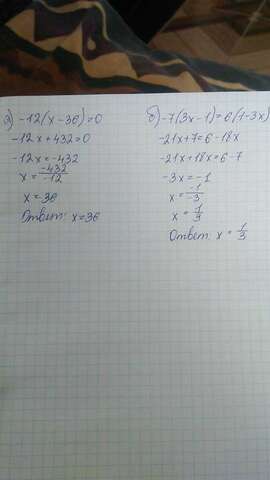 а) -12(x-36)=0
-12x+432=0
-12x=-432
x=\frac{-432}{-12}
x=36
Ответ: x=36
б) -7(3x-1)=6(1-3x)
-21x+7=6-18x
-21x+18x=6-7
-3x=-1
x=\frac{-1}{-3}
x=\frac{1}{3}
Ответ: x=\frac{1}{3}